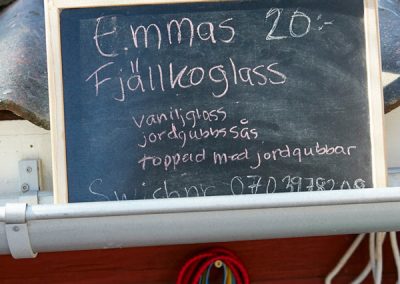 Emmas 20:-
Fjällkoglass
vaniljglass
jordgubbssås
toppad med jordgubbar
Swishnr 0703978208